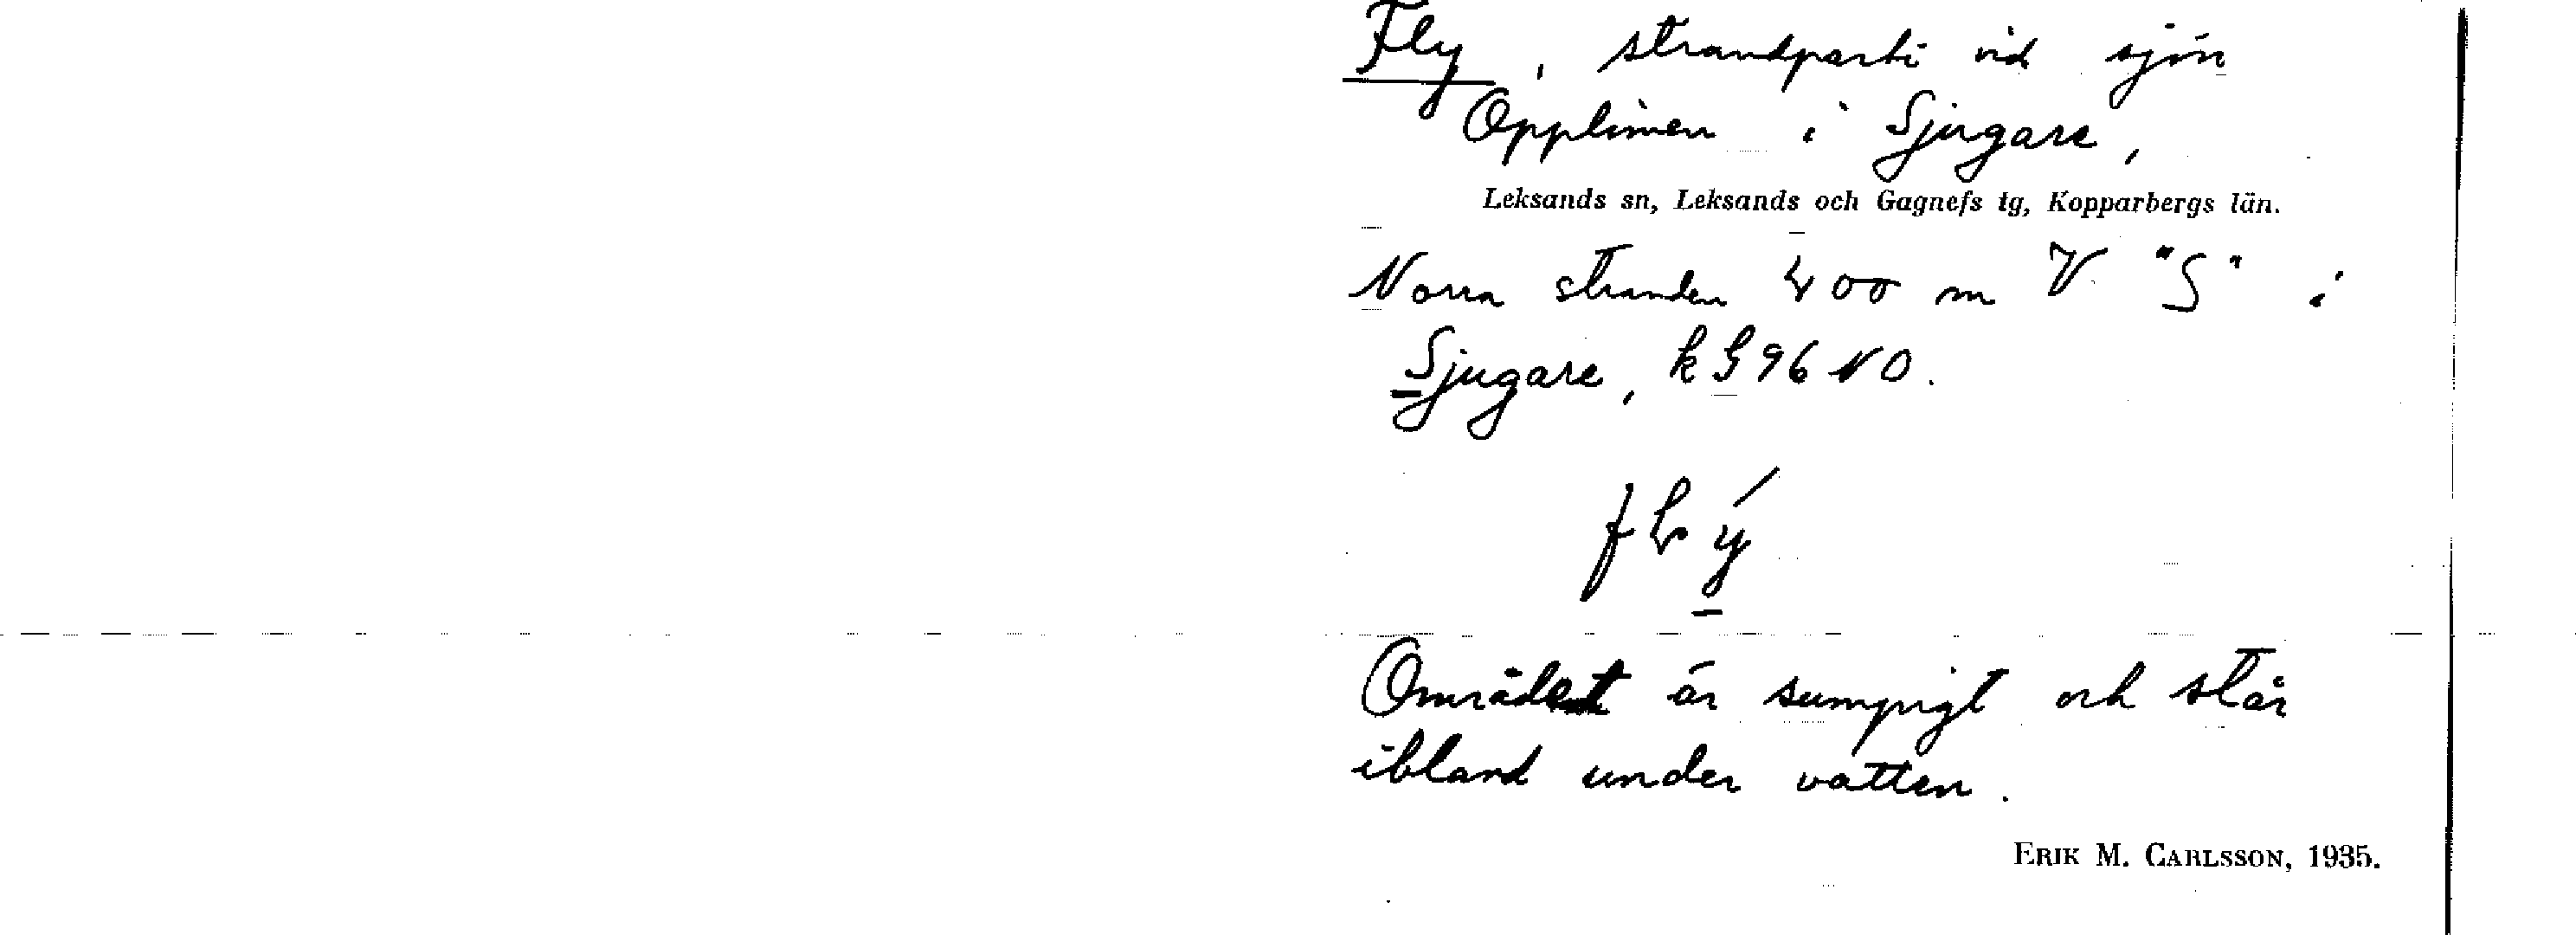 Fly, strandparti vid sjön
Opplimen i Sjugare,
Leksands sn, Leksands och Gagnefs tg, Kopparbergs län.
Norra stranden 400 m V "S" i
Sjugare, k G 96 NO.
Området är sumpigt och står
ibland under vatten.
ERIK M. CARLSSON, 1935.